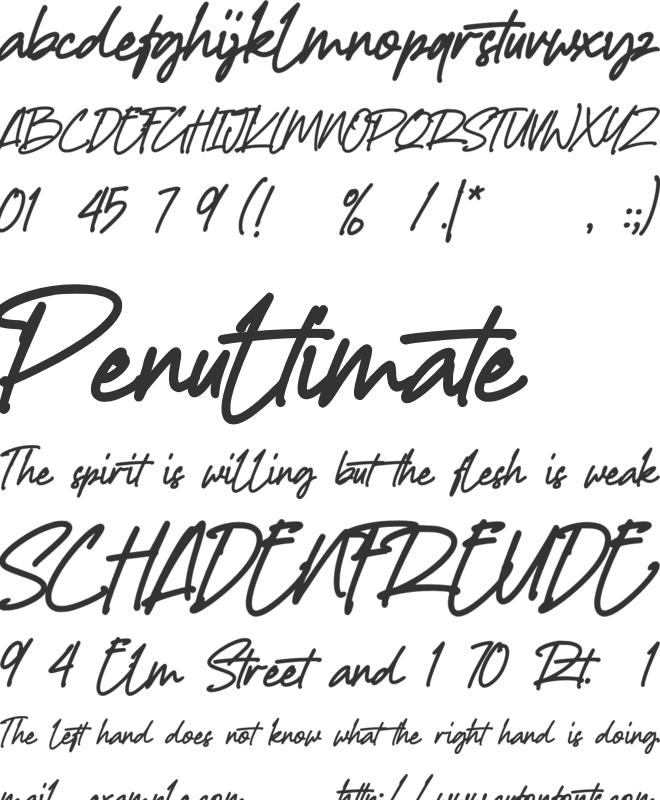 abcdefghijklmnopqrstuvwxyz
ABCDEFGHIJKLMNOPQRSTUVWXYZ
01 45 7 9 (! % / .|* , :;)
Penultimate
The spirit is willing but the flesh is weak
SCHADENFREUDE
9 4 Elm Street and 1 70 Rt. 1
The left hand does not know what the right hand is doing.